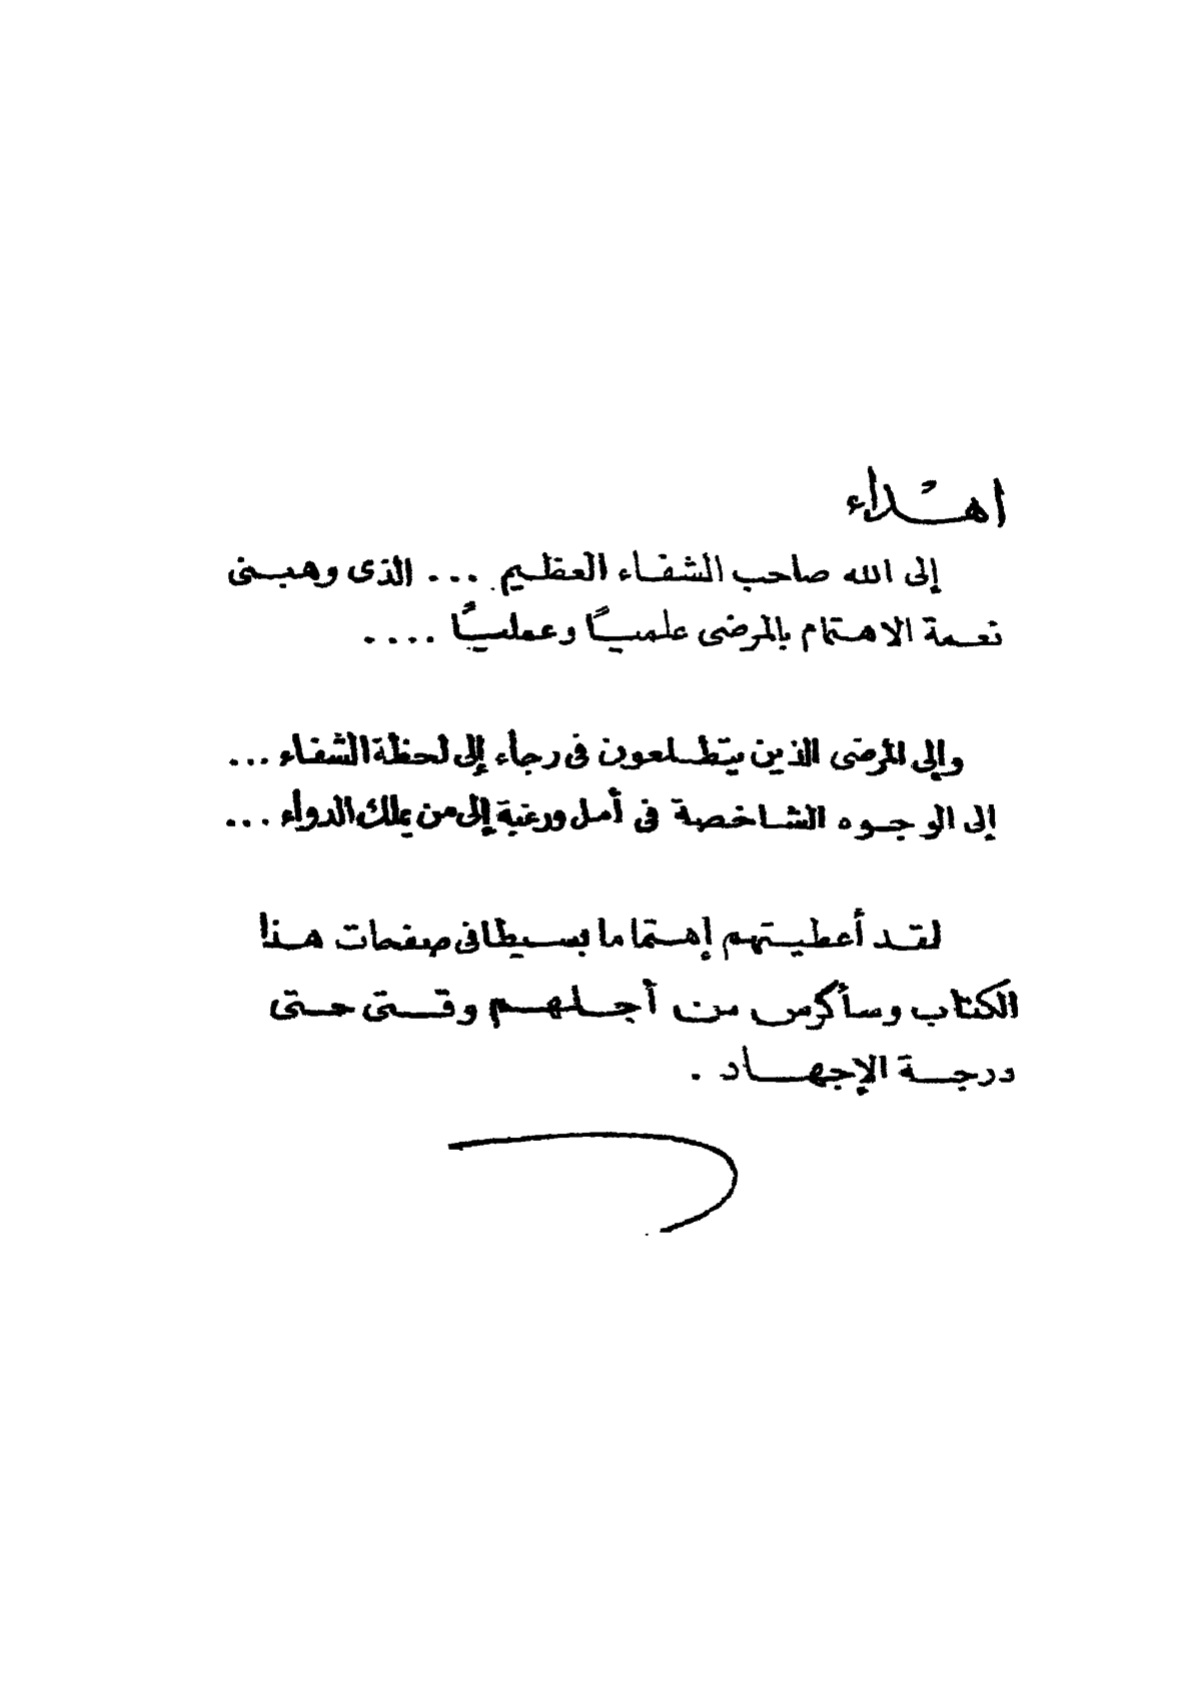 اهداء
إلى الله صاحب الشفاء العظيم ... الذى وهبنى
نعمة الاهتمام بالمرضى علمياً وعملياً ....
وإلى المرضى الذين يتطلعون فى رجاء إلى لحظة الشفاء ...
إلى الوجوه الشاخصة فى أمل ورغبة إلى من يملك الدواء ...
لقد أعطيتهم إهتماما بسيطا فى صفحات هذا
الكتاب وسأكرس من أجلهم وقتى حتى
درجة الإجهاد .